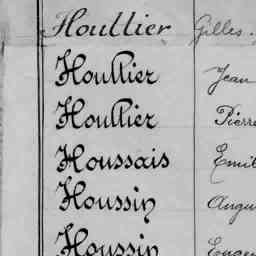 Houllier Gilles.
Houllier Jean
Houllier Pierre
Houssais Emil
Houssin Augu
Houssin Eugen